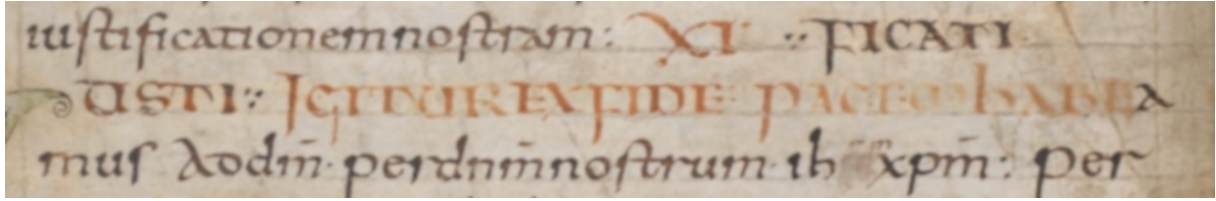 iustificationemnostram: XI ·:· FICATI
IUSTI·:· IGITUREXFIDE PACEM habea
mus Aodm̄· perdnm̄nostrum· ih xpm̄: Per